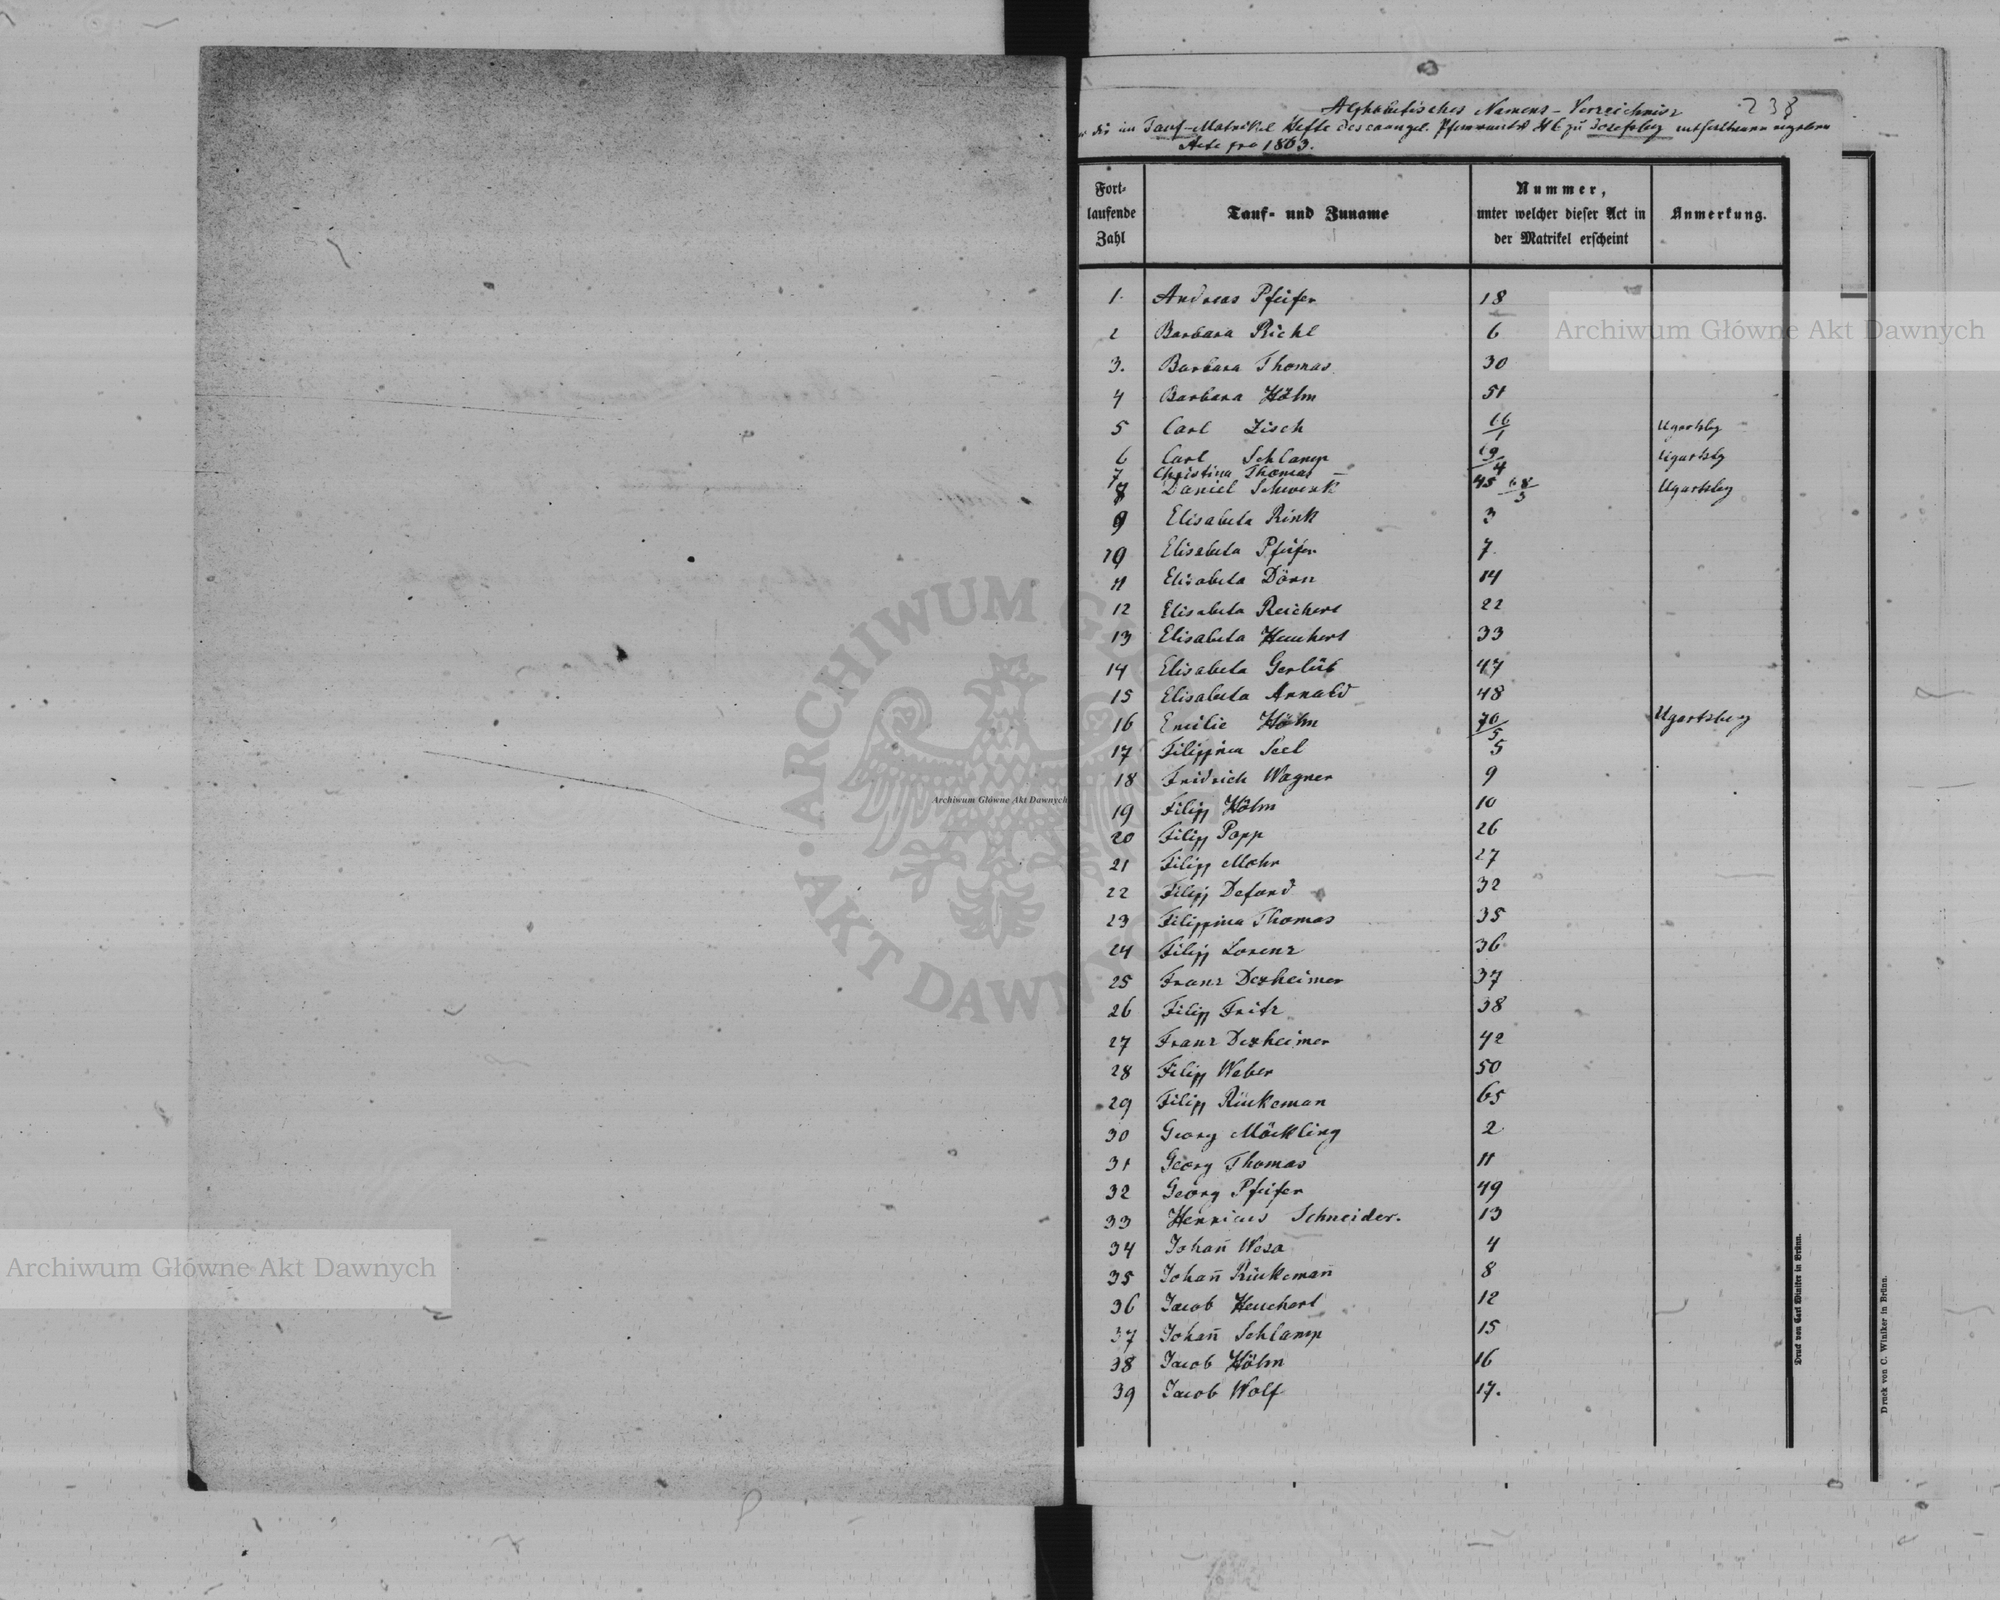 238
Alphabetisches Namens-Verzeichniss
die im Tauf-Matrikel Hefte des evangel. Pfarramtes H C zu Josefsberg
Acte pro 1863.
Fort-
laufende
Zahl
Tauf- und Zuname
Nummer,
unter welcher dieser Act in
der Matrikel erscheint
Anmerkung.
1. Andreas Pfeifer 18
2 Barbara Richl 6
3. Barbara Thomas 30
4 Barbara Höhn 51
5 Carl Zisch 16/1 Ugartsbg
6 Carl Schlamp 69/4 Ugartsbg
7 Christina Thomas 45
8 Daniel Schwenk 68/3 Ugartsbg
9 Elisabeta Rink 3
10 Elisabeta Pfeifer 7
11 Elisabeta Dörn 14
12 Elisabeta Reichert 22
13 Elisabeta Heuchert 33
14 Elisabeta 47
15 Elisabeta Arnold 48
16 Emilie Höhn 70/5 Ugartsberg
17 Filippina Seel 5
18 Fridrich Wagner 9
19 Filipp Höhn 10
20 Filipp Popp 26
21 Filipp Mohr 27
22 Filipp Deford 32
23 Filippina Thomas 35
24 Filipp Lorenz 36
25 Franz Dexheimer 37
26 Filipp Fritz 38
27 Franz Dexheimer 42
28 Filipp Weber 50
29 Filipp Rükeman 65
30 Georg Möckling 2
31 Georg Thomas 11
32 Georg Pfeifer 49
33 Henricus Schneider. 13
34 Johan̄ Weza 4
35 Johan̄ Rükeman̄ 8
36 Jacob Heuchert 12
37 Johan̄ Schlamp 15
38 Jacob Höhn 16
39 Jacob Wolf 17.
Druck von Carl Winiker in Brünn.
Druck von C. Winiker in Brünn.
Archiwum Główne Akt Dawnych
Archiwum Główne Akt Dawnych
Archiwum Główne Akt Dawnych
ARCHIWUM GŁÓWNE AKT DAWNYCH